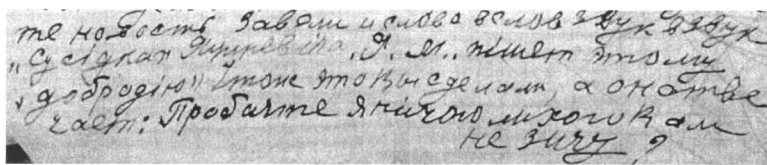 те новость завяли и слово вслов звук взвук
„Сусідкам Яцкевіча. Я. М. пішет этому
„добродію" Што ж это Вы сделали, а он отве
чает: Пробачте я нічого лихого Вам
не зичу ?